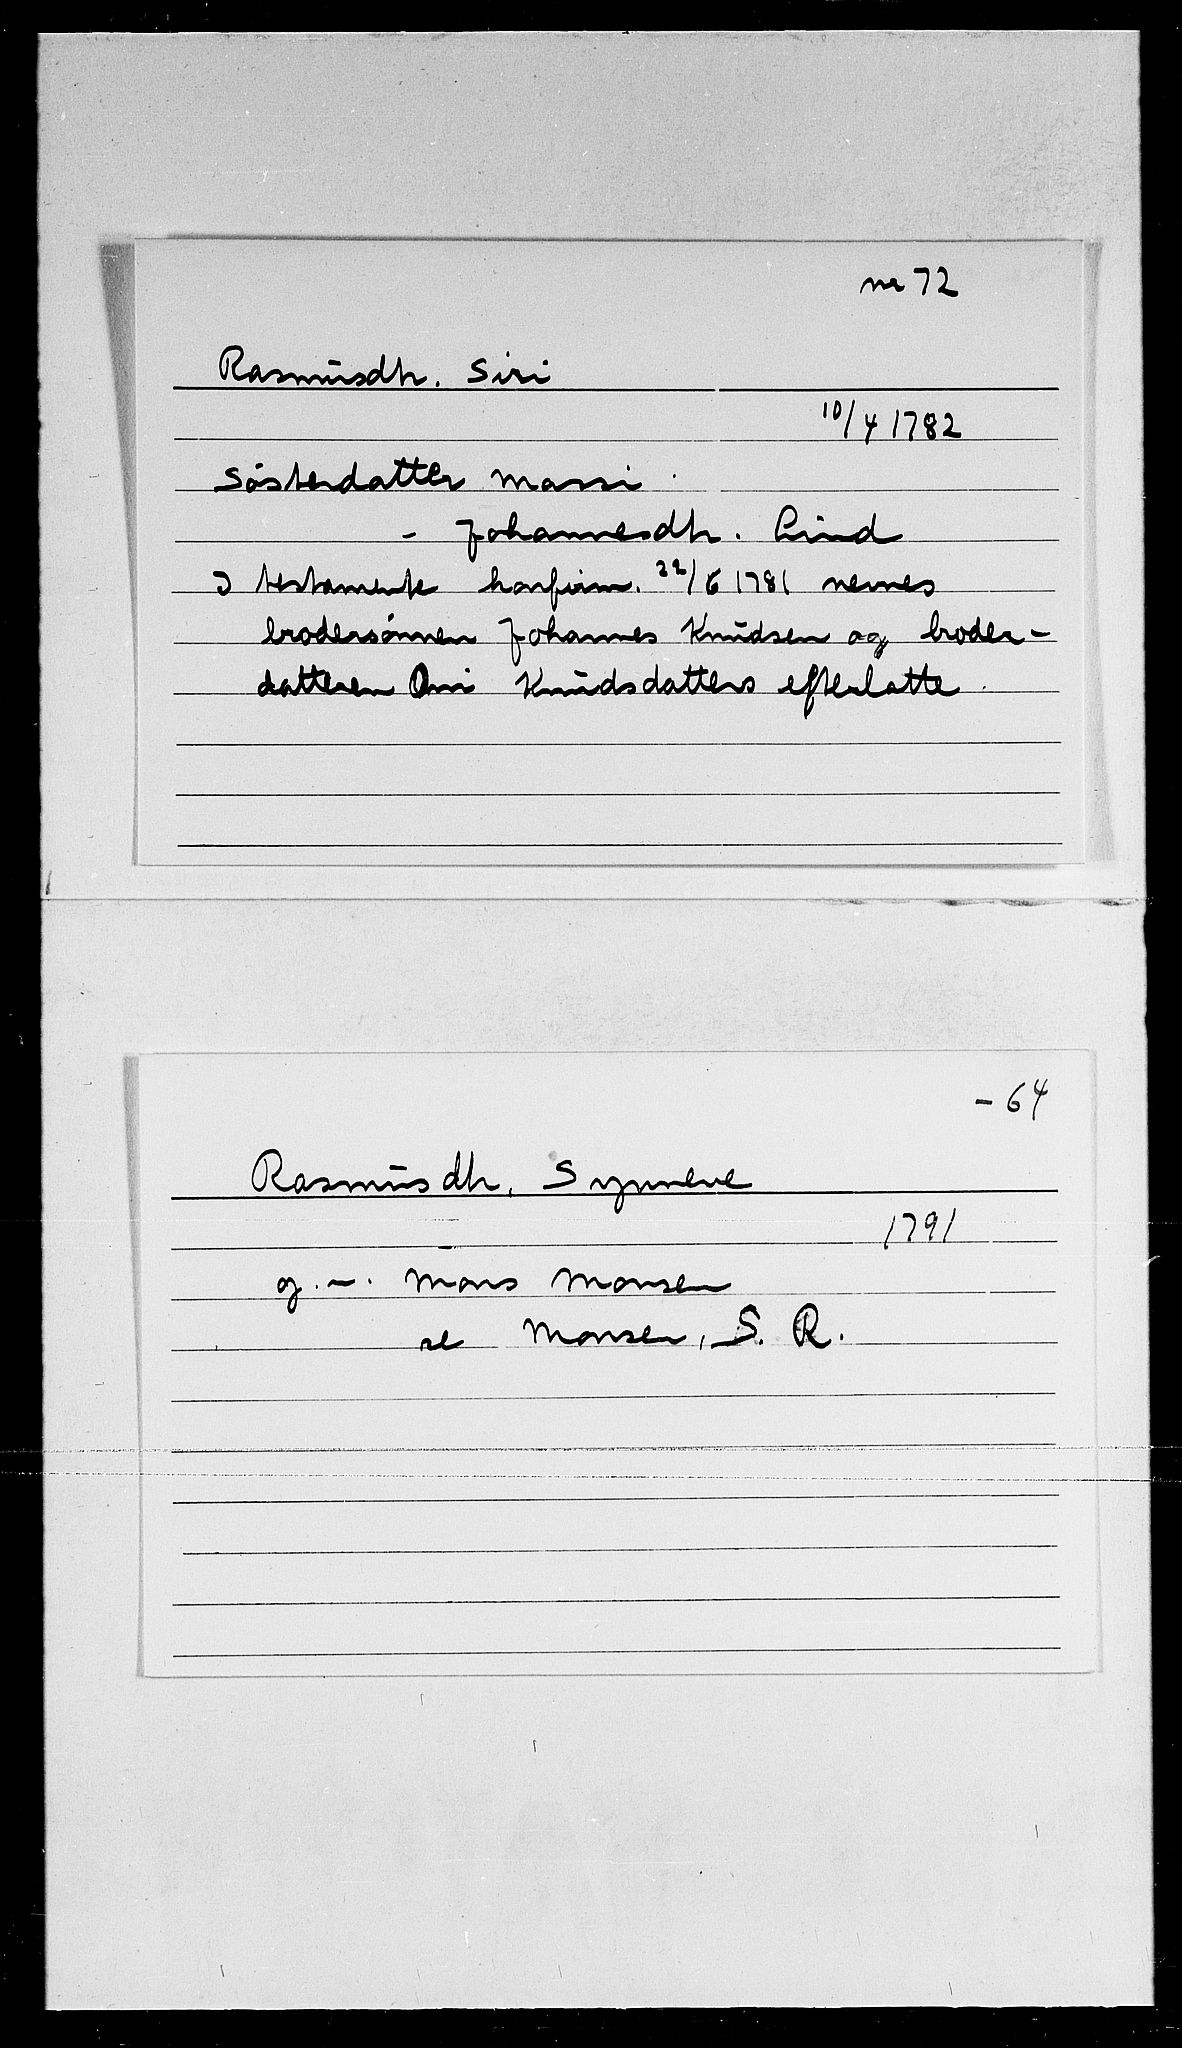 nr 72
Rasmusdtr. Siri
10/4 1782
Søsterdatter Marri
- Johannesdtr. Lind
I testamente konfirm. 22/6 1781 nevnes
brodersønnen Johannes Knudsen og broder-
datteren Knudsdatters efterlatte.
- 64
Rasmusdtr. Synneve
1791
g. m. Mons Monsen
se Monsen, S. R.